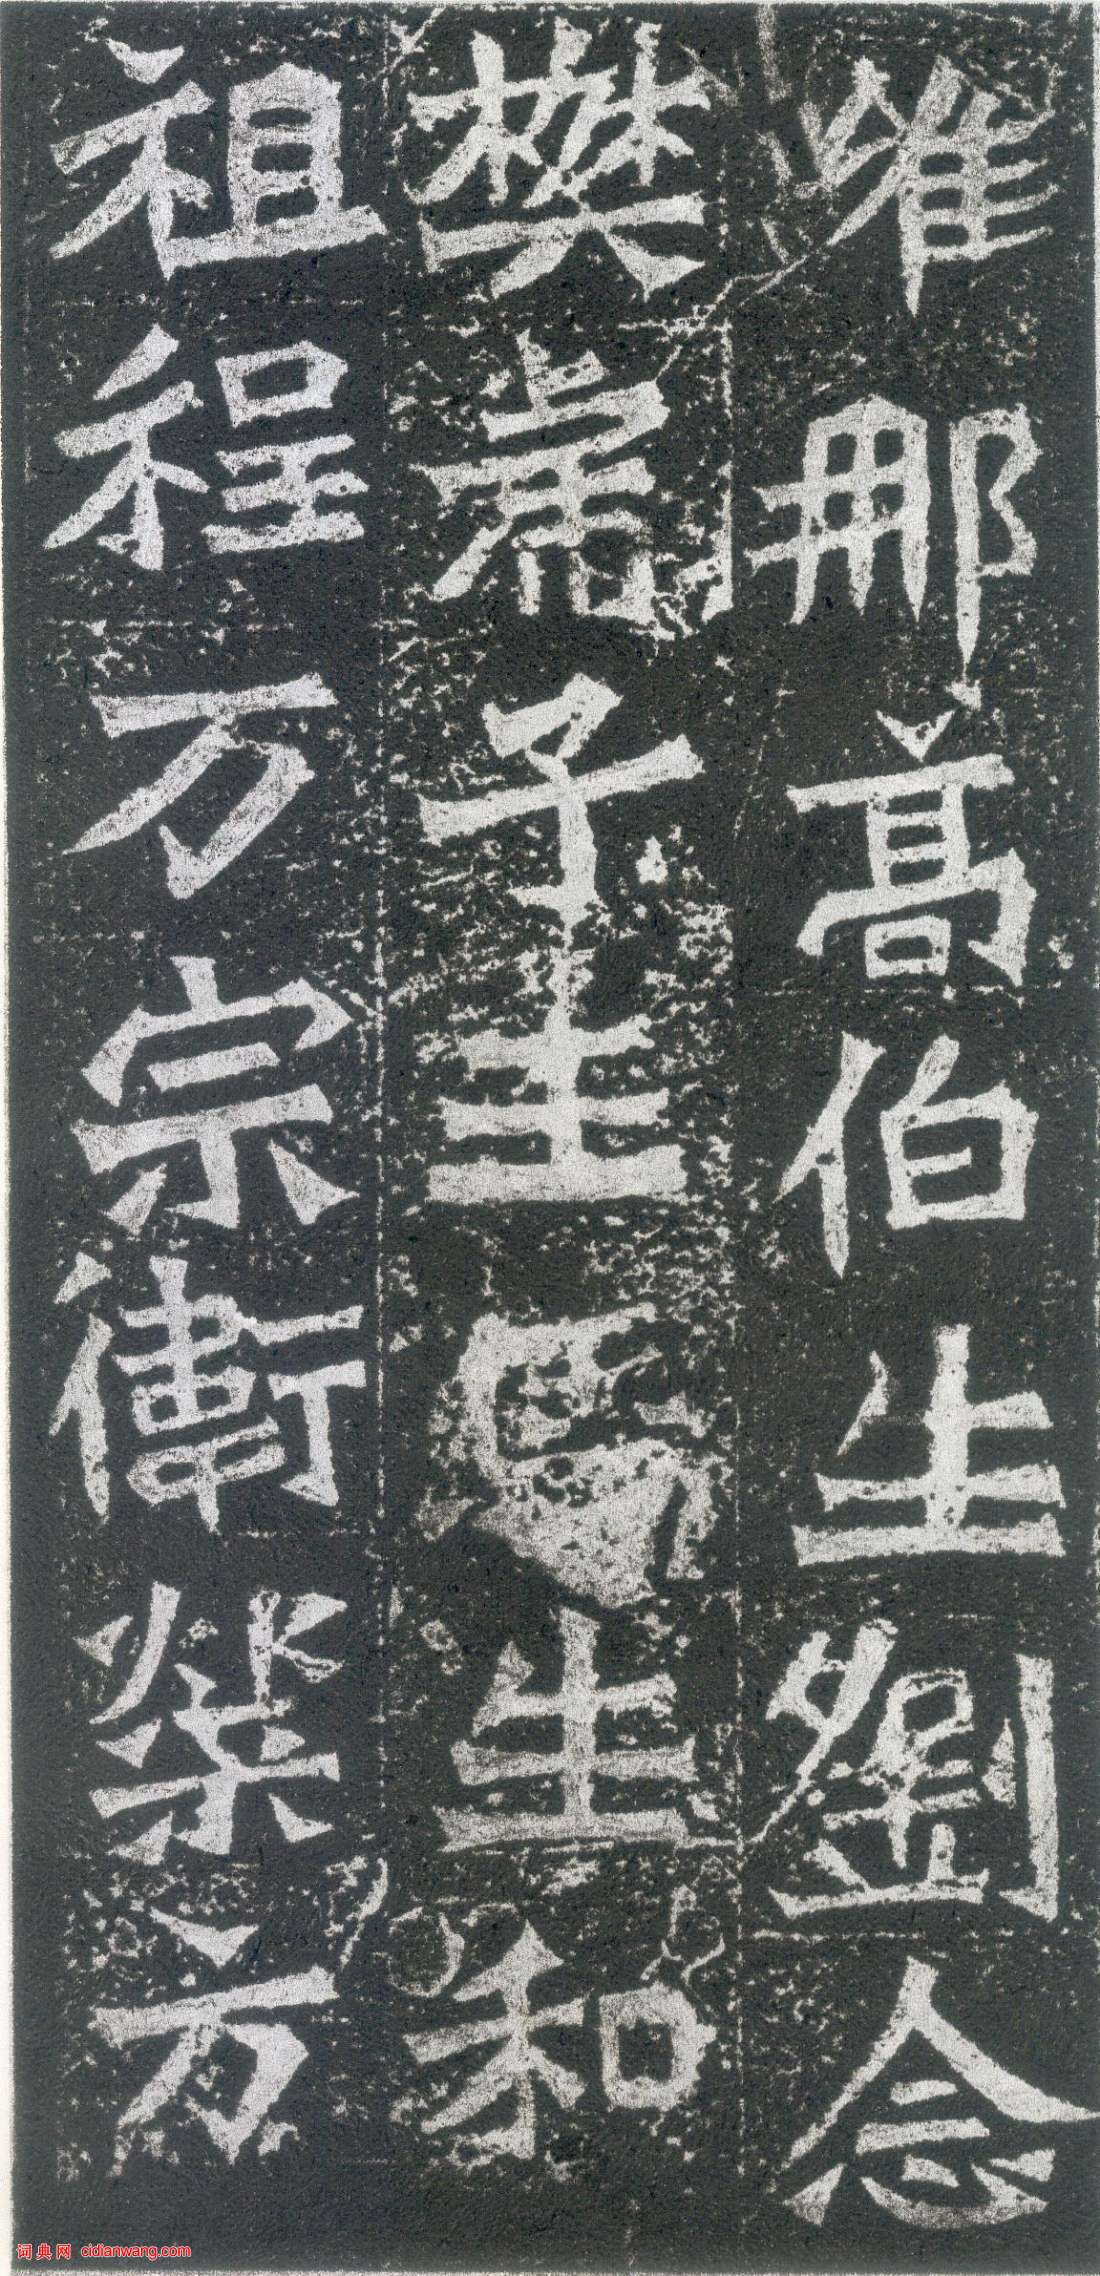 維那高伯生劉念
樊虎子王 生和
祖程万宗衛榮方
词典网 cidianwang.com